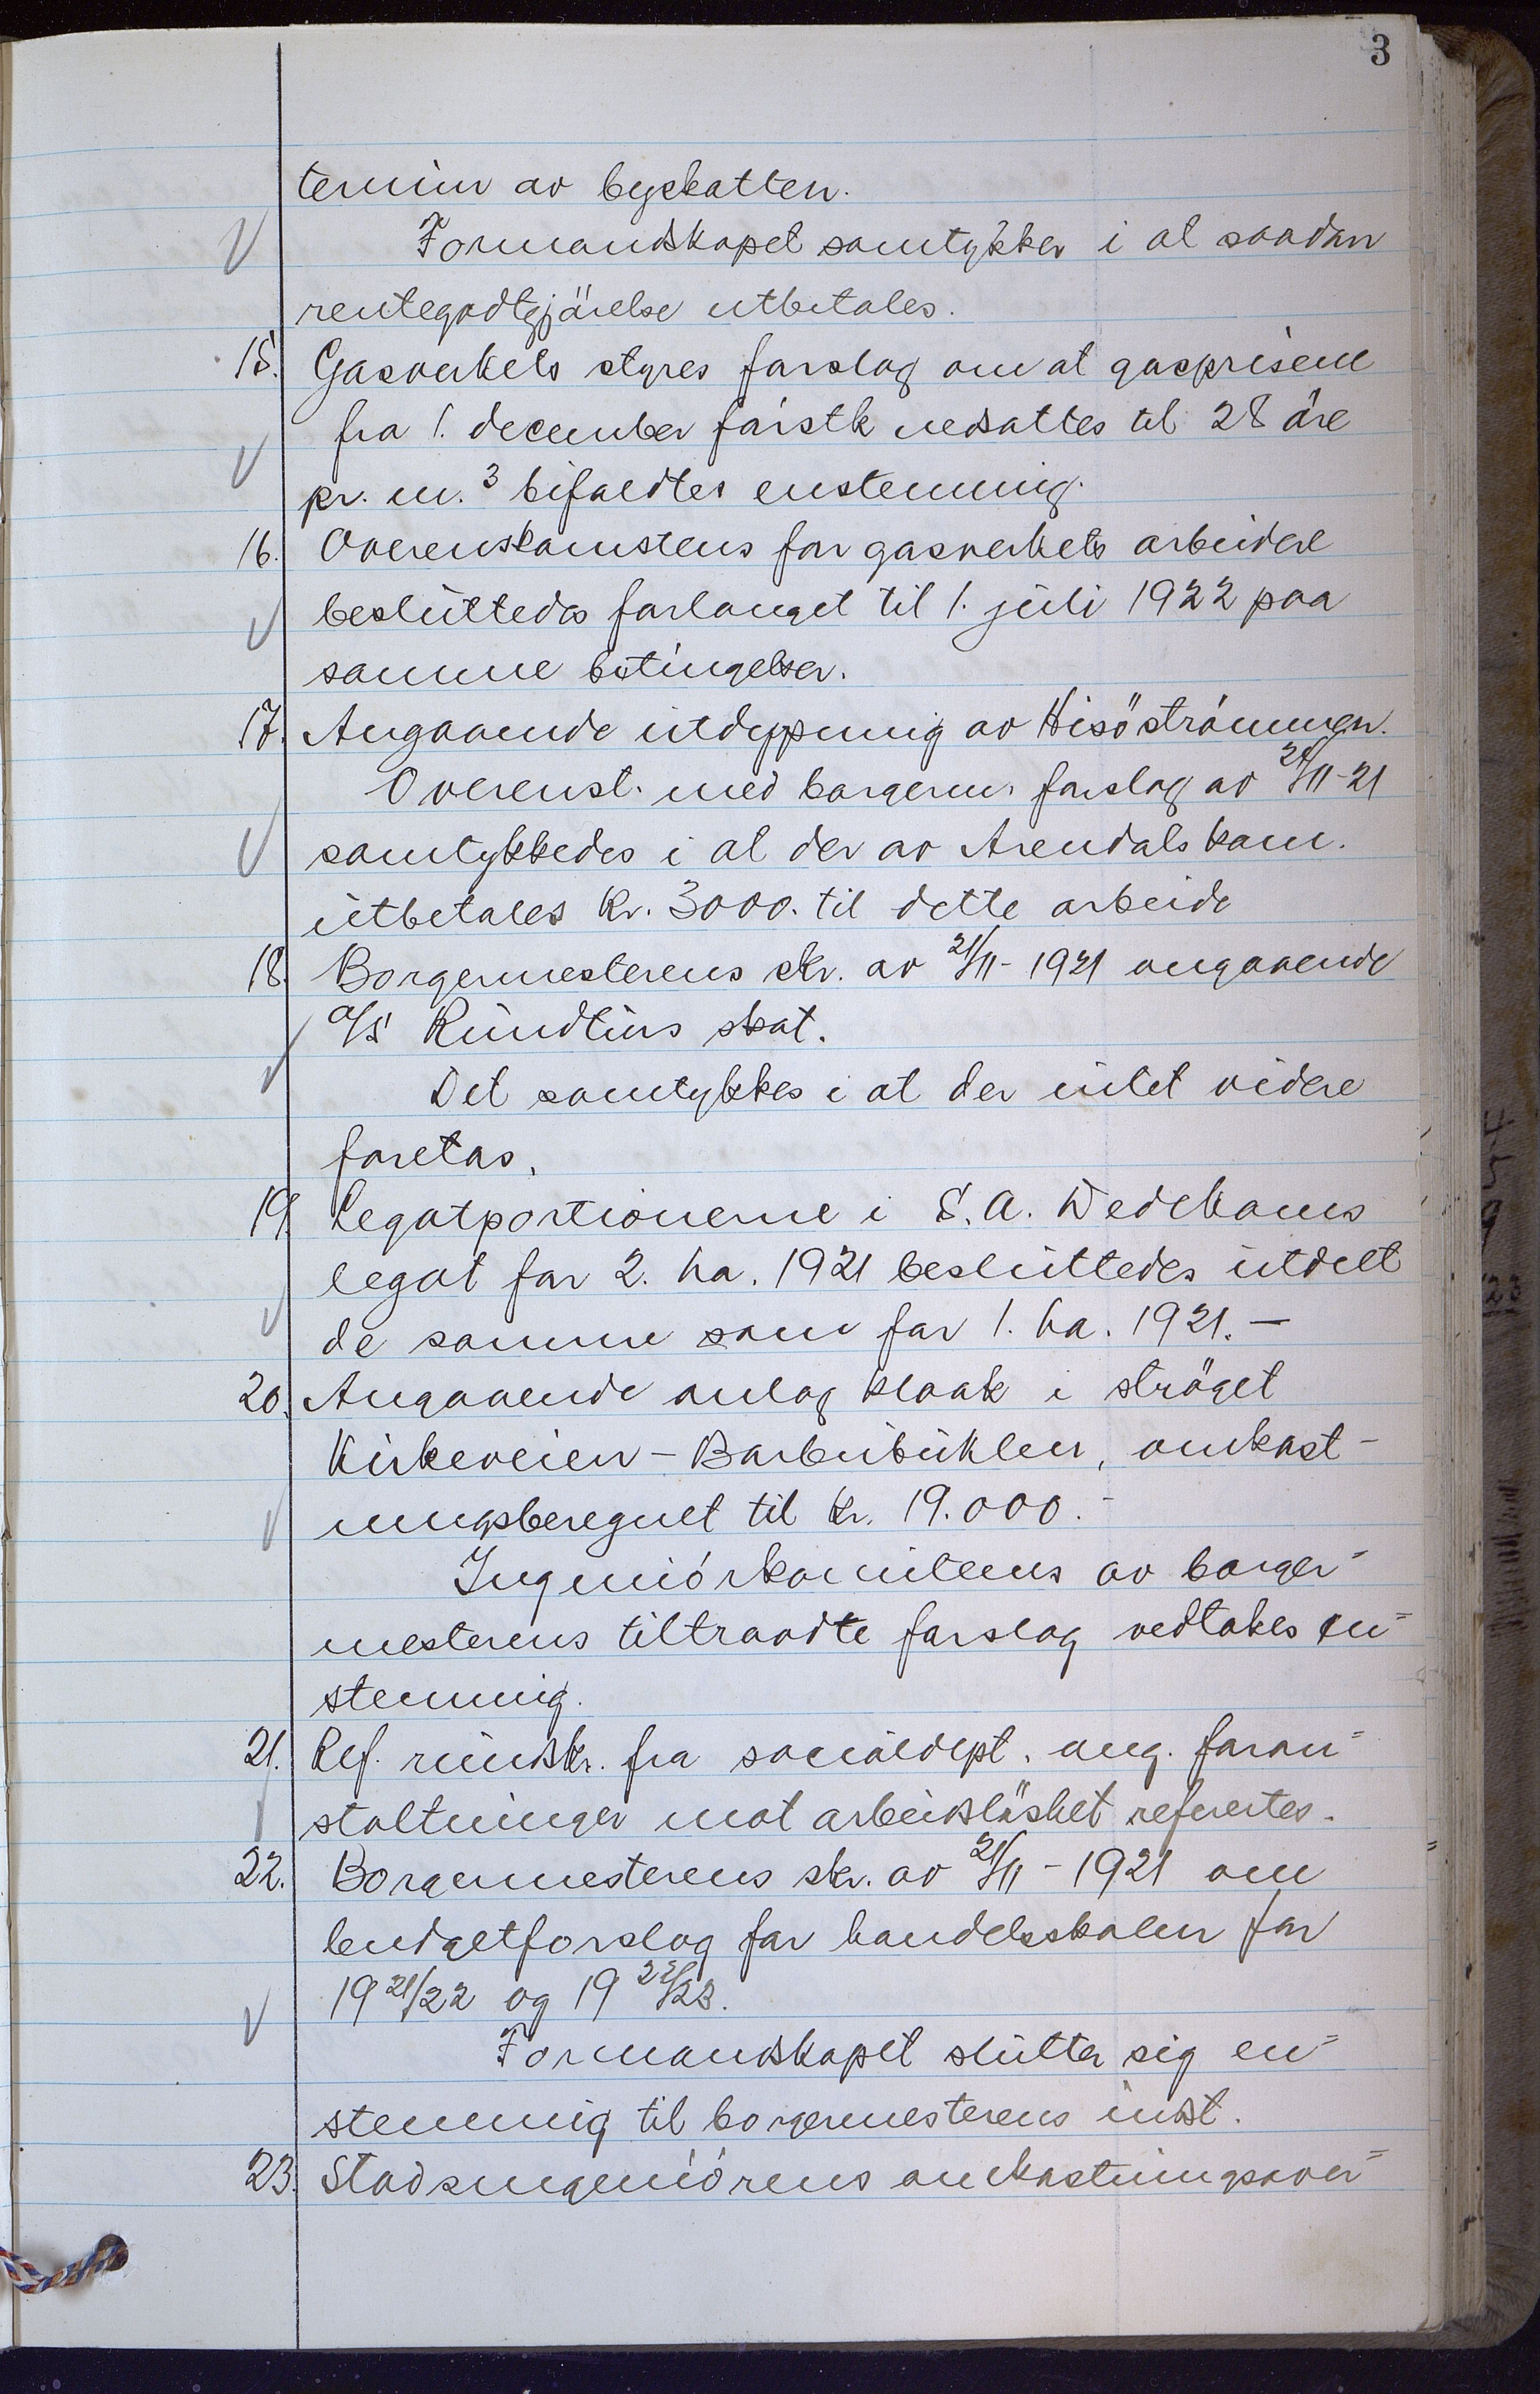 3
termin av byskatten.
Formandskapet samtykker i at saadan
rentegodtgjörelse utbetales.
15. Gasverkets styres forslag om at gasprisene
fra 1. december förstk nedsattes til 28 öre
pr. m.3 bifaldtes enstemmig.
16. Overenskomstens for gasverkets arbeidere
besluttedes forlænget til 1. juli 1922 paa
samme betingelser.
17. Angaaende utdypning av Hisöströmmen.
Overenst. med borgerm. forslag av 21/11-21
samtykkedes i at der av Arendals kom.
utbetales kr. 3000. til dette arbeide
18. Borgermesterens skr. av 21/11-1921 angaaende
a/s Rundturs skat.
Det samtykkes i at der intet videre
foretas.
19. Legatportionerne i S. A. Dedekams
legat for 2. ha. 1921 besluttedes utdelt
de samme som for 1. ha. 1921.—
20. Angaaende anlæg kloak i ströget
Kirkeveien - Barbubukilen, omkost-
ningsberegnet til kr. 19.000.-
Ingeniörkomiteens av borger=
mesterens tiltraadte forslag vedtakes en=
stemmig.
21. Ref. rundskr. fra socialdept. ang. foran=
staltninger mot arbeidslöshet refertes.
22. Borgermesterens skr. av 21/11-1921 om
budgetforslag for handelsskolen for
1921/22 og 1922/23.
Formandskapet slutter sig en=
stemmig til borgermesterens indst.
23. Stadsingeniörens omkostningsover=